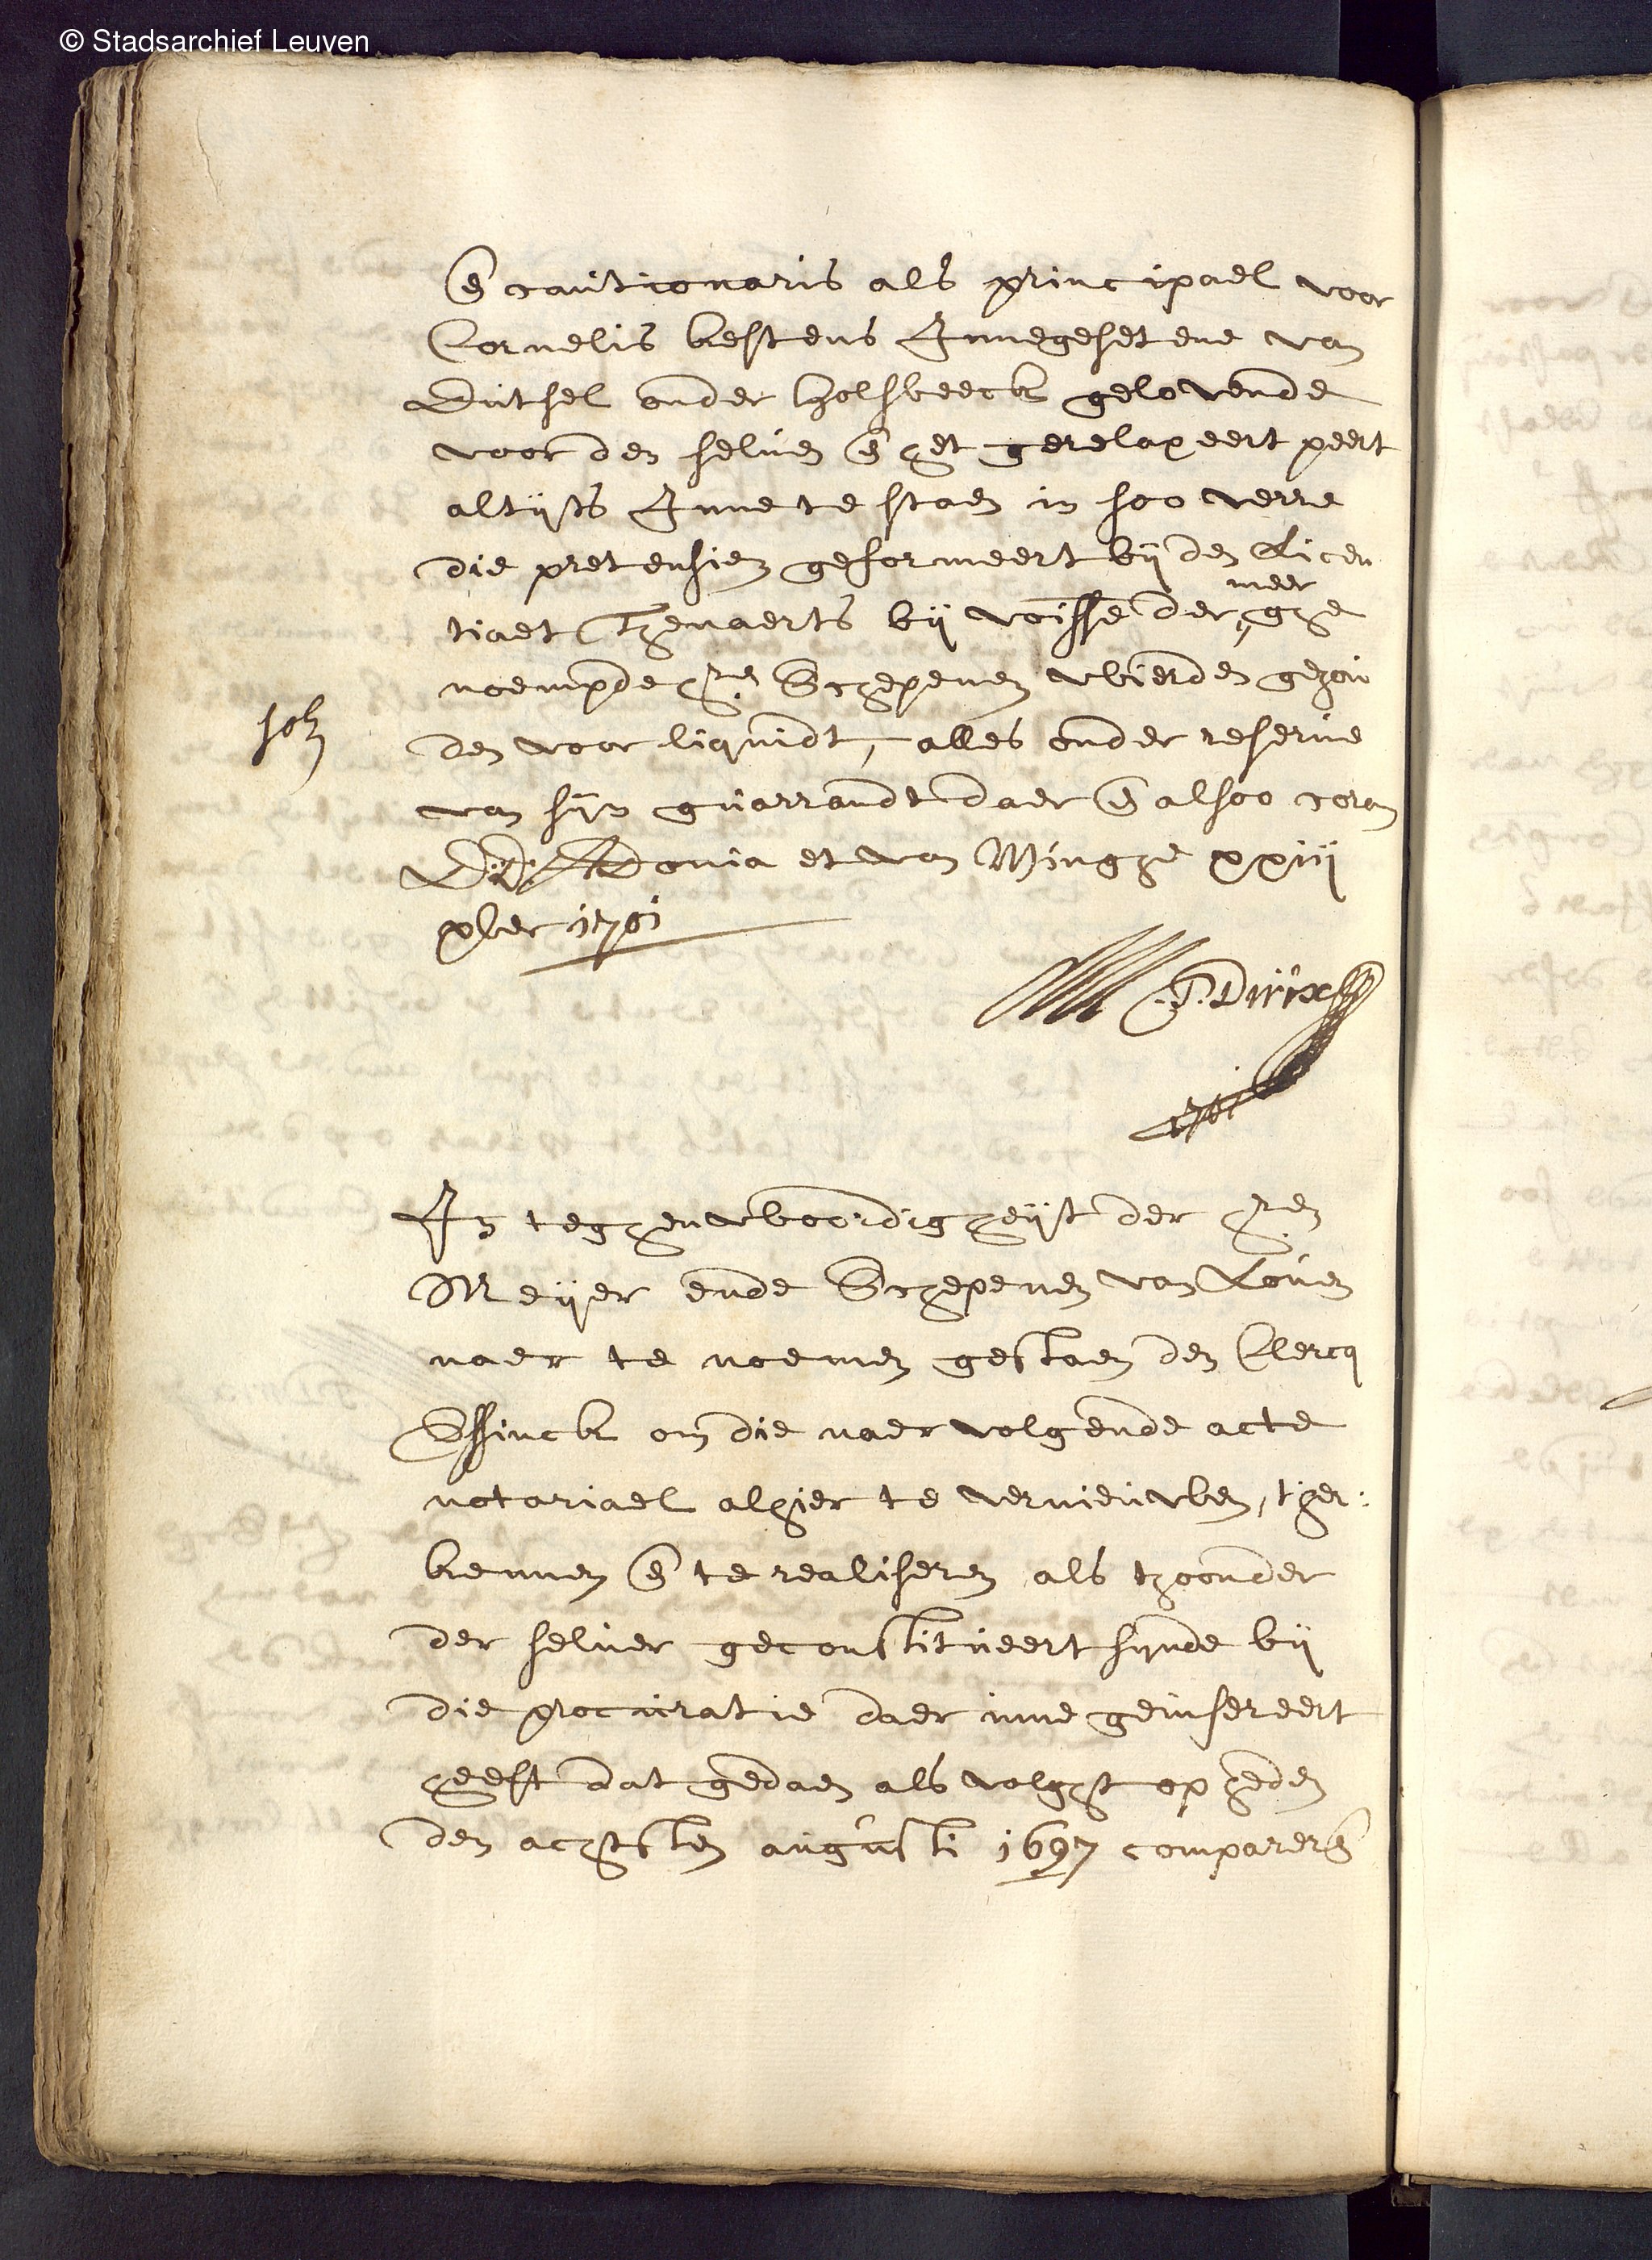 © Stadsarchief Leuven
en cautionaris als principael voor
Cornelis kestens Innegesetene van
Dutsel onder Holsbeeck gelovende
voor den selven en het gerelaxeert peert
altyts Inne te staen in soo verre
die pretensien geformeert bij den Licen
tiaet Thenaerts bij voisse der meer ghe
noempde hren Schepenen wierden gehou
den voor liquidt, alles onder reserve
solt
van syn guarrandt daer en alsoo coram
DD. et van Winghe xxiij
xber 1701
J. Dirix
1701
In teghenwboordigheyt der hren
Meyer ende Schepenen van Loven
naer te noemen gestaen den Clercq
Essinck om die naervolgende acte
notariael alhier te vernieuwben, t'her:
kennen en te realiseren als thoonder
der selver geconstitueert synde bij
die procuratie daer inne geinsereert
heeft dat gedaen als volght op heden
den achtsten augusti 1697 comparerende